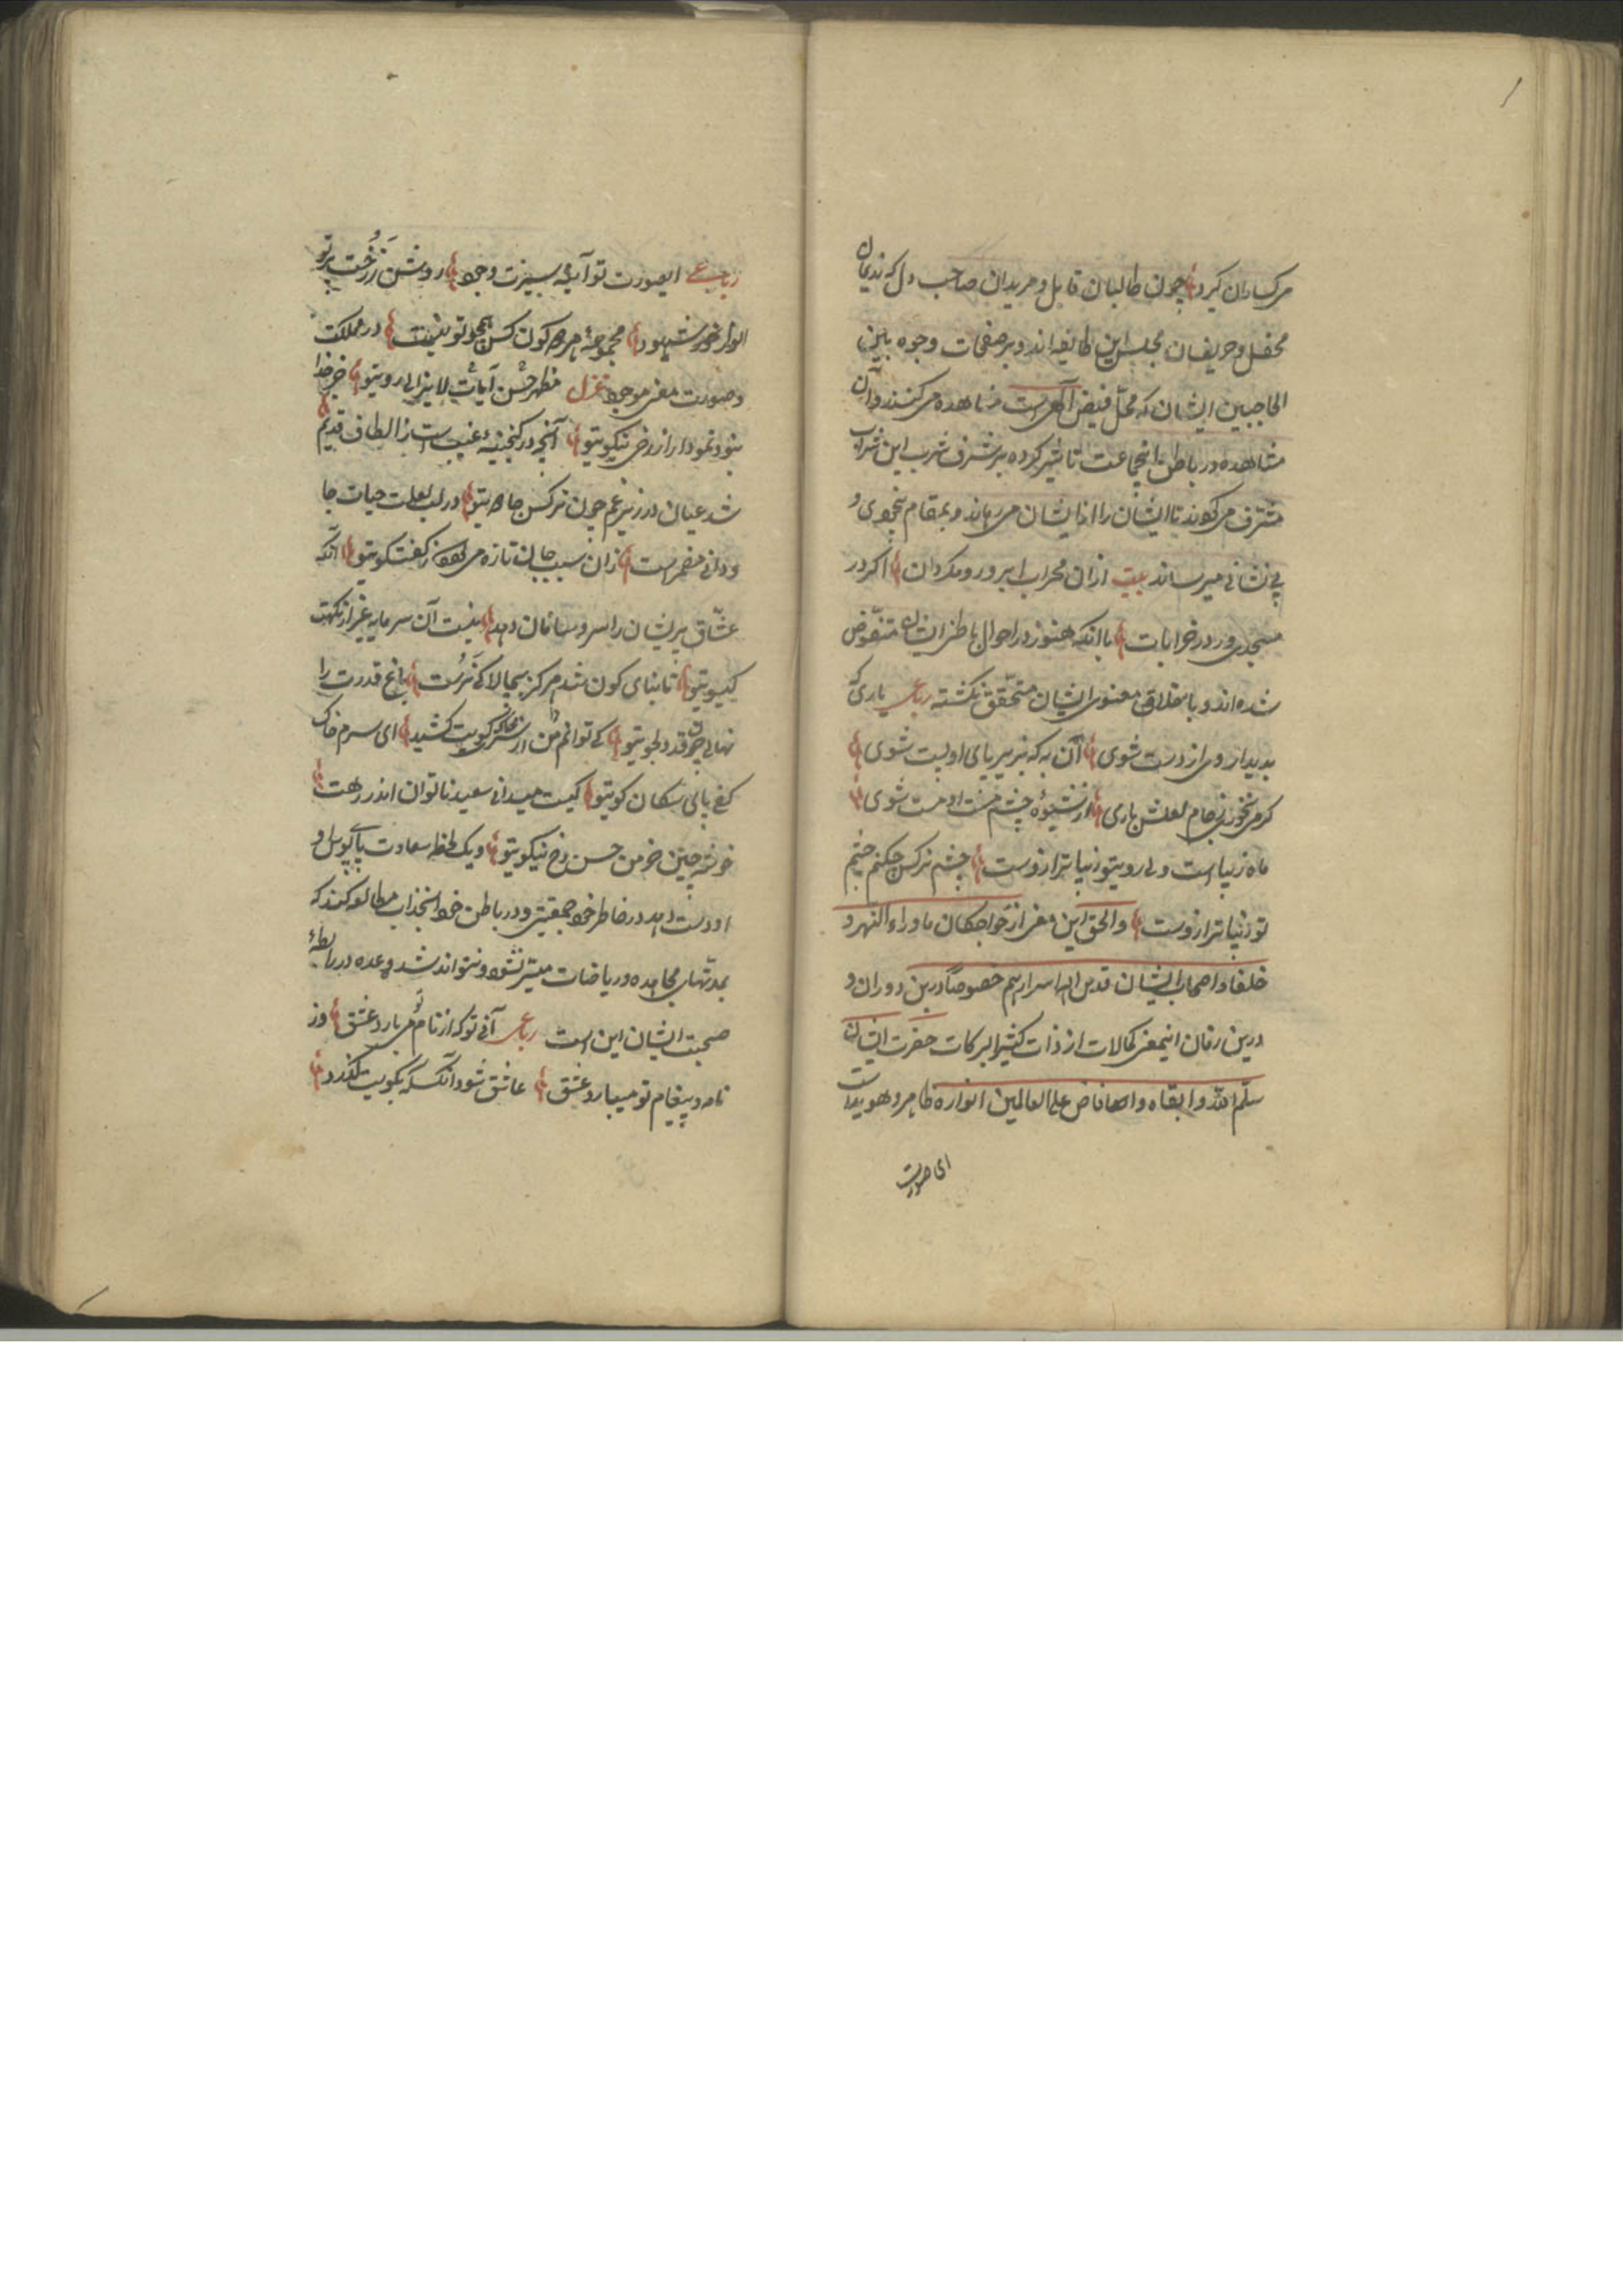 میکساران کیرد چون طالبان قابل و مریدان صاحب دل که ندیمان
محفل و حریفان مجلس این طایفه اند و بر صفحات وجوه بابین
الحاجبین ایشان که محلّ فیض آگهی است مشاهده می کنند و آن
مشاهده در باطن انجماعت تاثیر کرده بر شرف شرب این شراب
مشرف می کردند تا ایشان را از ایشان می رهاند و بمقام بیخودی و
بی نشانی میرساند بیت ازان محراب ابرو رو مکردان اکر در
مسجدی ور در خرابات با انکه هنوز در احوال باطن ایشان
شده اند و باخلاق معنوی ایشان متحقّق نکشته رباعی یاری که
بدیدار وی از دست شوی آن به که بزیر پای او پست شوی
کر می نخوری ز جام لعلش باری از شیوهٔ چشم مست او مست شوی
ماه زیباست ولی رویتو زیباتر ازوست چشم نرکس چکنم چشم
تو زیباتر ازوست والحق این معنی از خواجکان ماوراءالنهر و
خلفا و اصحاب ایشان قدس الله اسرارهم خصوصاً درین دوران و
درین زمان اینمعنی کمالات از ذات کثیر البرکات حضرت ایشان
سلّم الله و ابقاه و افاض علی العالمین انواره ظاهر و هویداست
ای صورت
رباعی ایصورت تو آیه سیرت وجود روشن ز رخت پرتو
انوار شهود مجموعهٔ کون کس همچو تو نیست در مملکت
و صورت معنی موجود غزل مظهر حُسن آیات لایزالی رویتو
بنود نمودار از رخ نیکویتو آنچه در کنجینهٔ غیب است از الطاف قدیم
شد عیان در زیر چون نرکس جادویتو در لب لعلت حیات جا
ودانی مضمر است زان سبب جان تازه می کردد ز کفت و کویتو انکه
عشّاق پریشان را سر و سامان دهد نیست آن سرمایه غیر از نکهت
کیسویتو تا بنای کون شد مرکز بحالا کی نَرُست باغ قدرت را
نهالی چون قد دلجویتو کی توانم من از کویت کشید ای سرم خاک
کف پای سکان کویتو کیست میدانی سعید ناتوان اندر رهت
خوشه چین خرمن حسن رخ نیکویتو و یک لحظه سعادت پای بوس او
دست دهد در خاطر خود جمعیتی و در باطن خود انجذابی مطالعه کنند که
بمدتهای مجاهده و ریاضات میسّر نشود و نتواند شد و عده در رابطهٔ
صحبت ایشان این است رباعی آنی تو که از نام تو می بارد عشق وز
نامه و پیغام تو میبارد عشق عاشق شود انکس که بکویت کذرد